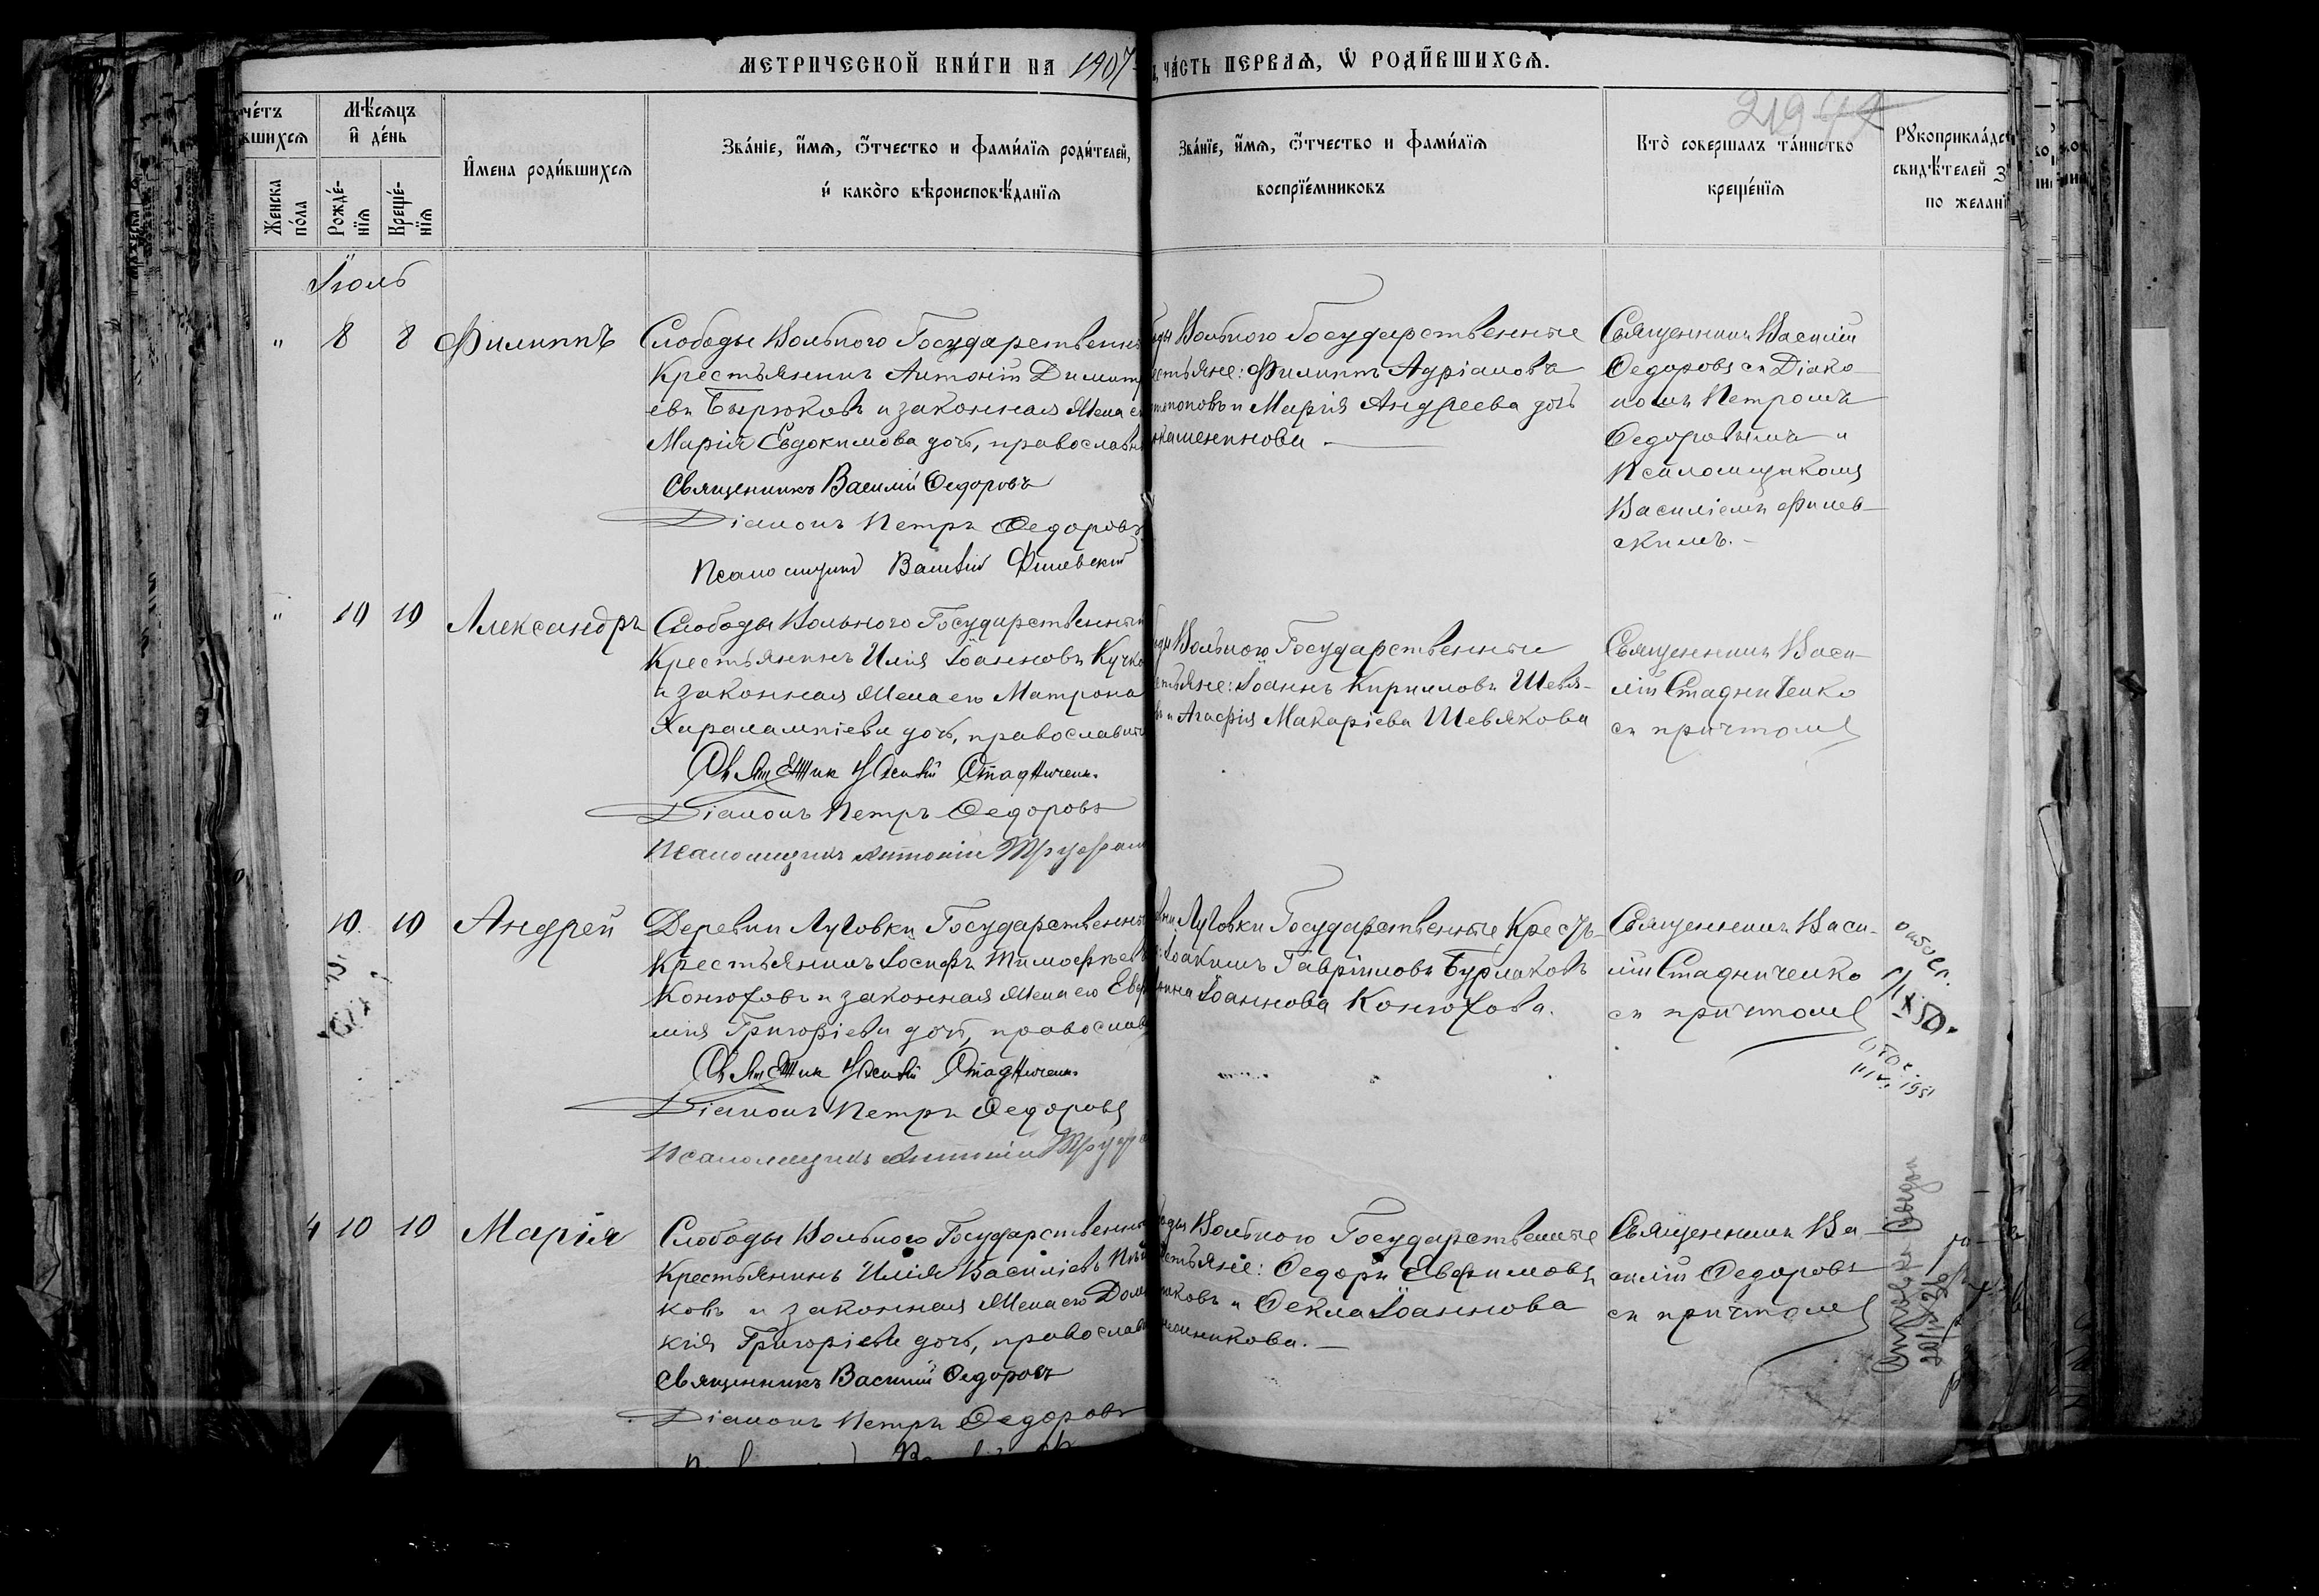 МЕТРИЧЕСКОЙ КНИ́ГИ НА 1907
ЧА́СТЬ ПЕРВАѦ, Ѡ҆ РОДИ́ВШИХСѦ.
че́тъ
вшихсѧ
Мѣ́сѧцъ
и҆ де́нь
Женска
по́ла
Рожде́-
нїѧ
Креще́-
нїѧ
И҆мена роди́вшихсѧ
Зва́нїе, и҆́мѧ, ѻ҆́тчество и фами́лїѧ роди́телей,
и҆ како́го вѣроисповѣ́данїѧ
Зва́нїе, и҆́мѧ, ѻ҆́тчество и фами́лїѧ
воспрїе́мниковъ
Кто̀ совершалъ та́инство
креще́нїѧ
Рꙋкоприкла́дс
свидѣ́телей з
по желанї
Іюль
" 8 8 Филиппъ
Слободы Вольного Государственны
Крестьянинъ Антоній Димитр
евъ Бирюковъ и законная жена е
Марія Евдокимова дочь, православн
Священникъ Василій Ѳедоровъ
Діаконъ Петръ Ѳедоровъ
Псаломщикъ Василій Филевскій
ды Вольного Государственные
стьяне: Филиппъ Адріановъ
и Марія Андреева дочь
Священникъ Василій
Ѳедоровъ съ Діако-
номъ Петромъ
Ѳедоровымъ и
Псаломщикомъ
Василіемъ Филев-
скимъ.-
" 10 10 Александръ
Слободы Вольного Государственный
Крестьянинъ Илія Іоанновъ Кучко
и законная жена его Матрона
Харалампіева дочь, православны
Священник Василій Стадниченк
Діаконъ Петръ Ѳедоровъ
Псаломщикъ Антоній
ды Вольного Государственные
стьяне: Іоаннъ Кирилловъ Шевя-
въ и Агафія Макаріева Шевякова
Священникъ Васи-
лій Стадниченко
съ причтомъ
10. 10 Андрей
Деревни Луговки Государственны
Крестьянинъ Іосифъ Тимофѣевъ
Конюховъ и законная жена его Евѳ
мія Григоріева дочь, православ
Священник Василій Стадниченк
Діаконъ Петръ Ѳедоровъ
Псаломщикъ Антоній
вни Луговки Государственные Кресть-
Іоакимъ Гавріиловъ Бурлаковъ
Іоаннова Конюхова.
Священникъ Васи-
лій Стадниченко
съ причтомъ
4 10 10 Марія
Слободы Вольного Государственны
Крестьянинъ Илія Василіевъ
ковъ и законная жена его Дом
кія Григоріева дочь, православ
Священникъ Василій Ѳедоровъ
Діаконъ Петръ Ѳедоровъ
оды Вольного Государственные
стьяне: Ѳедоръ Евфимовъ
ковъ и Ѳекла Іоаннова
никова.-
Священникъ Ва-
силій Ѳедоровъ
съ причтомъ